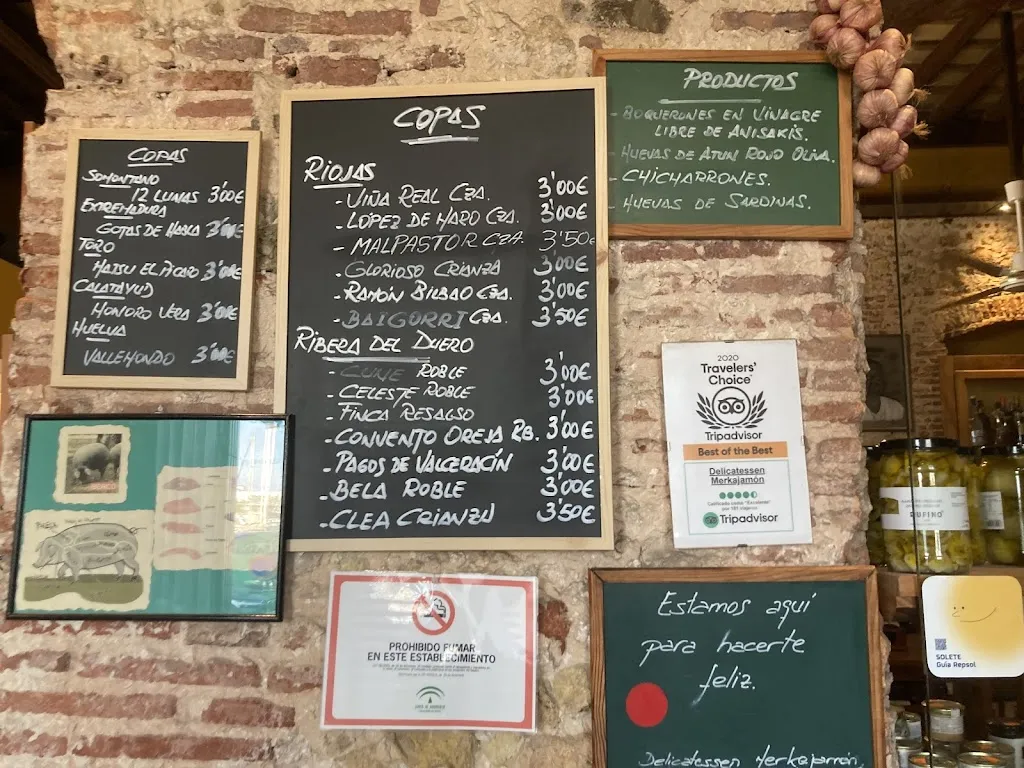 COPAS
SOMONTANO
12 LUNAS 3'00€
EXTREMADURA
GOTAS DE HABLA 3'00€
TORO
MATSU EL PICARO 3'00€
CALATAYUD
HONORO VERA 3'00€
HUELVA
VALLEMONDO 3'00€
COPAS
RIOJAS
- VIÑA REAL CZA. 3'00€
- LOPEZ DE HARO CZA. 3'00€
- MALPASTOR CZA. 3'50€
- GLORIOSO CRIANZA 3'00€
- RAMÓN BILBAO CZA. 3'00€
- BAIGORRI CZA. 3'50€
RIBERA DEL DUERO
- CUNE ROBLE 3'00€
- CELESTE ROBLE 3'00€
- FINCA RESALSO
- CONVENTO OREJA RB. 3'00€
- PAGOS DE VALCERACÍN 3'00€
- BELA ROBLE 3'00€
- CLEA CRIANZA 3'50€
PRODUCTOS
- BOQUERONES EN VINAGRE
LIBRE DE ANISAKIS.
- HUEVAS DE ATUN ROJO OLIVA.
- CHICHARRONES.
- HUEVAS DE SARDINAS.
2020
Travelers'
Choice
Tripadvisor
Best of the Best
Delicatessen
Merkajamón
Tripadvisor
PROHIBIDO FUMAR
EN ESTE ESTABLECIMIENTO
Estamos aquí
para hacerte
feliz.
Delicatessen Merkajamón.
RUFINO
SOLETE
Guía Repsol